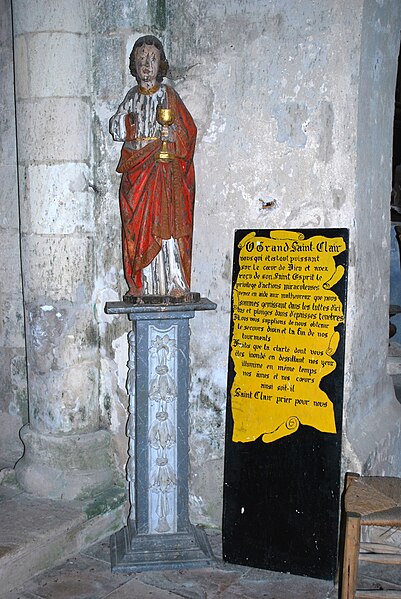 O Grand Saint Clair
vous qui êtes tout puissant
sur le cœur de Dieu et avez
reçu de son Saint Esprit le
privilège d'actions miraculeuses
venez en aide aux malheureux que nous
sommes gémissant dans les luttes d'ici
bas et plongés dans d'épaisses ténèbres
nous vous supplions de nous obtenir
le secours divin et la fin de nos
tourments
Faites que la clarté dont vous
êtes inondé en dessillant nos yeux
illumine en même temps
nos âmes et nos cœurs
ainsi soit-il
Saint Clair priez pour nous